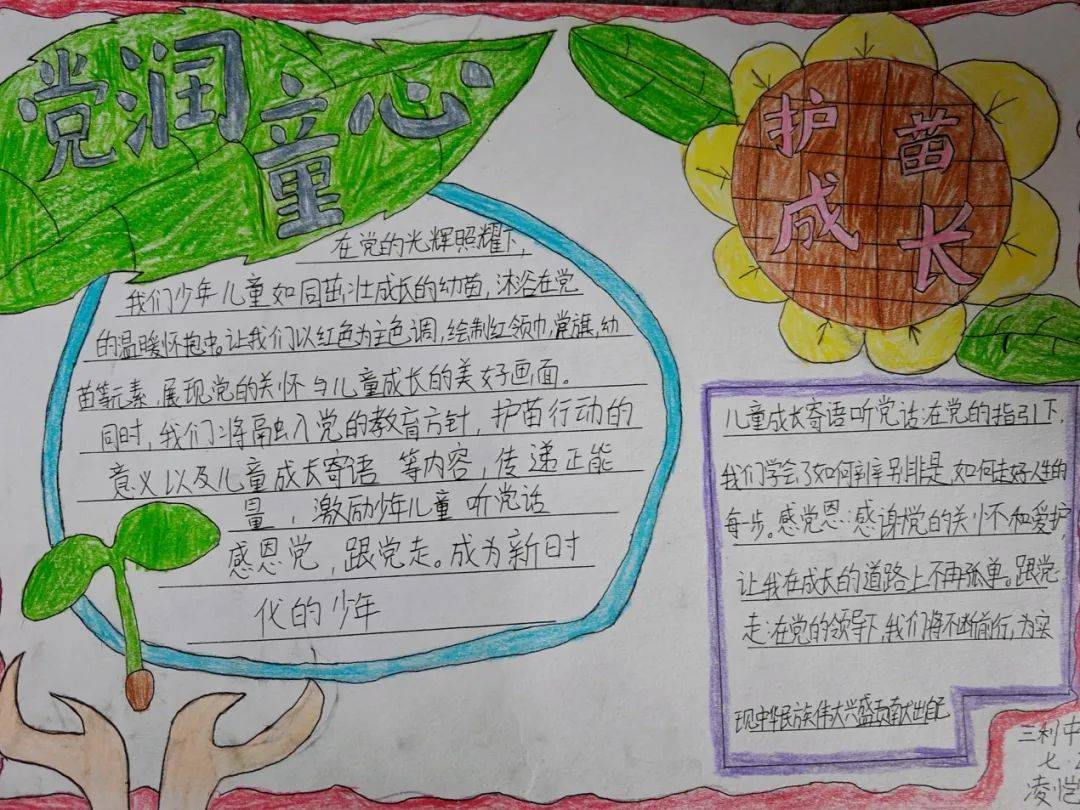 党润童心
护苗
成长
在党的光辉照耀下,
我们少年儿童如同茁壮成长的幼苗,沐浴在党
的温暖怀抱中.让我们以红色为主色调,绘制红领巾,党旗,幼
苗等元素,展现党的关怀与儿童成长的美好画面。
同时,我们将融入党的教育方针,护苗行动的
意义以及儿童成长寄语 等内容,传递正能
量,激励少年儿童 听党话
感恩党,跟党走。成为新时
代的少年
儿童成长寄语听党话:在党的指引下,
我们学会了如何辛辛别非是,如何走好人生的
每步。感党恩:感谢党的关怀和爱护,
让我在成长的道路上不再孤单。跟党
走:在党的领导下,我们将不断前行,为实
现中华民族伟大兴盛贡献出自己
三利中
七
凌恺